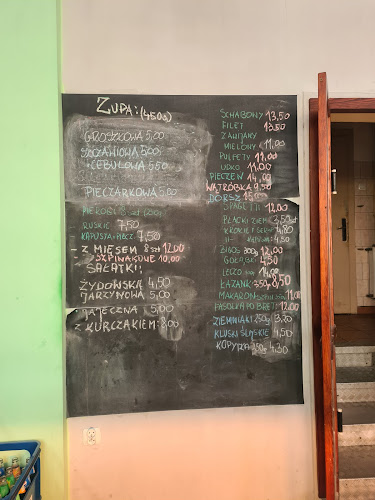 ZUPA: (450G)
GROSZKOWA 5,00
SZCZAWIOWA 5,00
CEBULOWA 5,50
PIECZARKOWA 5,00
PIEROGI 8 szt (300G)
RUSKIE 7,50
- KAPUSTA i PIECZ. 7,50
- Z MIĘSEM 8szt 12.00
SZPINAKOWE 10,00
SAŁATKI:
ŻYDOWSKA 4,50
JARZYNOWA 5,00
JAJECZNA 5,00
Z KURCZAKIEM 8,00
SCHABOWY 13,50
FILET 13.50
ZAWIJANY
MIELONY 11,00
PULPETY 11,00
UDKO 11.00
PIECZEŃ 14,00
WĄTRÓBKA 9,50
DORSZ
SPAGETTI 12,00
PLACKI ZIEM
KROKIET Z SEREM 4,80
BIGOS 300g 12,00
GOŁĄBKI 4,50
LECZO 14,00
ŁAZANKI 350g 8,50
MAKARON 11,00
FASOLKA PO BRET. 12,00
ZIEMNIAKI 250g 3,30
KLUSKI ŚLĄSKIE 4,50
KOPYTKA 250g 4,30